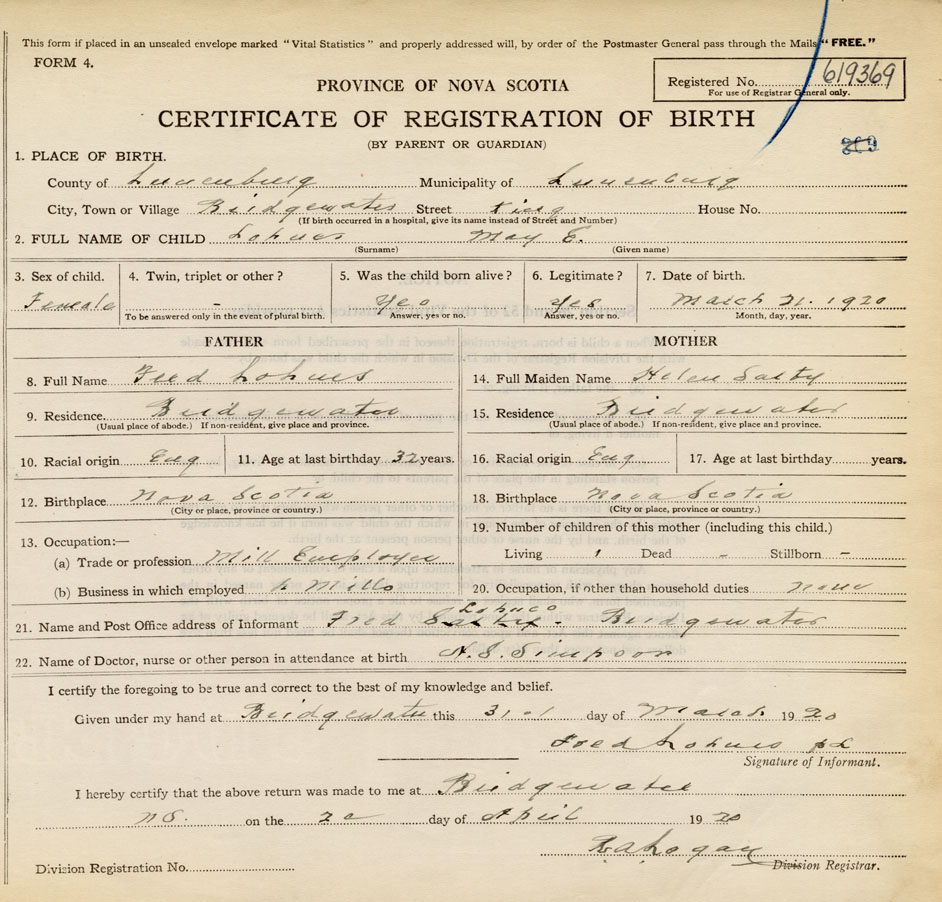 This form if placed in an unsealed envelope marked "Vital Statistics" and properly addressed will, by order of the Postmaster General pass through the Mails "FREE."
FORM 4.
Registered No. 619369
For use of Registrar General only.
PROVINCE OF NOVA SCOTIA
CERTIFICATE OF REGISTRATION OF BIRTH
(BY PARENT OR GUARDIAN)
1. PLACE OF BIRTH.
County of Lunenburg Municipality of Lunenburg
City, Town or Village Bridgewater Street King House No.
(If birth occurred in a hospital, give its name instead of Street and Number)
2. FULL NAME OF CHILD Lohnes May E.
(Surname) (Given name)
3. Sex of child. 4. Twin, triplet or other? 5. Was the child born alive? 6. Legitimate? 7. Date of birth.
Female - Yes Yes March 21. 1920
To be answered only in the event of plural birth. Answer, yes or no. Answer, yes or no. Month, day, year.
FATHER MOTHER
8. Full Name Fred Lohnes 14. Full Maiden Name Helen
9. Residence Bridgewater 15. Residence Bridgewater
(Usual place of abode.) If non-resident, give place and province. (Usual place of abode.) If non-resident, give place and province.
10. Racial origin Eng 11. Age at last birthday 32 years. 16. Racial origin Eng 17. Age at last birthday years.
12. Birthplace Nova Scotia 18. Birthplace Nova Scotia
(City or place, province or country.) (City or place, province or country.)
19. Number of children of this mother (including this child.)
13. Occupation:—
(a) Trade or profession Mill Employee Living 1 Dead - Stillborn -
(b) Business in which employed Mills 20. Occupation, if other than household duties None
21. Name and Post Office address of Informant Fred Lohnes - Bridgewater
22. Name of Doctor, nurse or other person in attendance at birth Simpson
I certify the foregoing to be true and correct to the best of my knowledge and belief.
Given under my hand at Bridgewater this 31 day of March 1920
Fred Lohnes
Signature of Informant.
I hereby certify that the above return was made to me at Bridgewater
NS. on the day of April 1920
Division Registration No. Division Registrar.